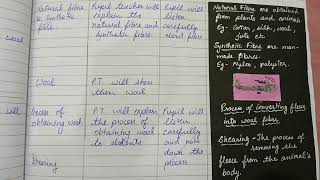 Natural fibre
& Synthetic
fibre
Pupil teacher will
explain the
natural fibre and
Synthetic fibre.
Pupil will
listen
carefully
about fibre
Wool
P.T. will show
them wool
will
Process of
obtaining wool
P.T. will explain
the process of
obtaining wool
to students
Pupil will
listen
carefully
and note
down the
process
Shearing
Natural Fibre are obtained
from plants and animals
Eg - Cotton, silk, wool,
jute etc
Synthetic Fibre are man-
made fibres.
Eg - Nylon, polyster.
Process of Converting fleece
into wool fibre
Shearing - The process of
removing the
fleece from the animal's
body.